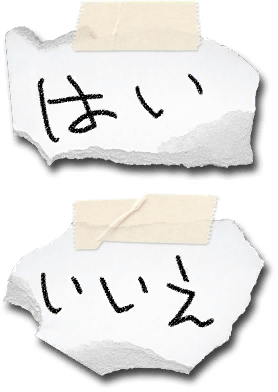 はい
いいえ